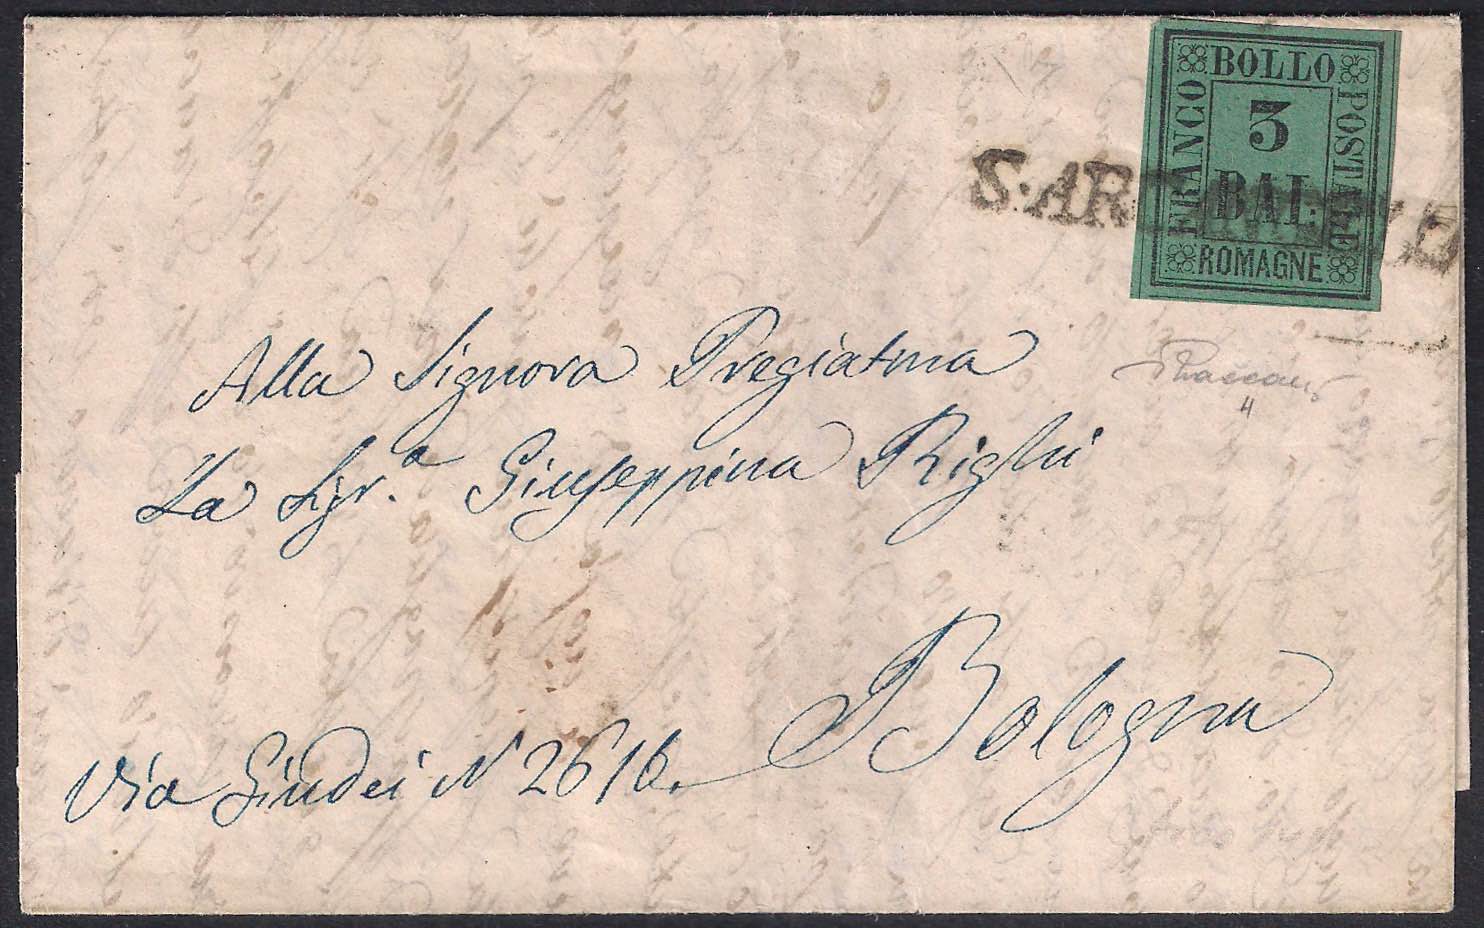 FRANCO BOLLO POSTALE
3
BAI
ROMAGNE
S. AR
Alla Signora Pregiatma
La Sigr.a Giuseppina Righi
Bologna
Via Giudei N 2616.